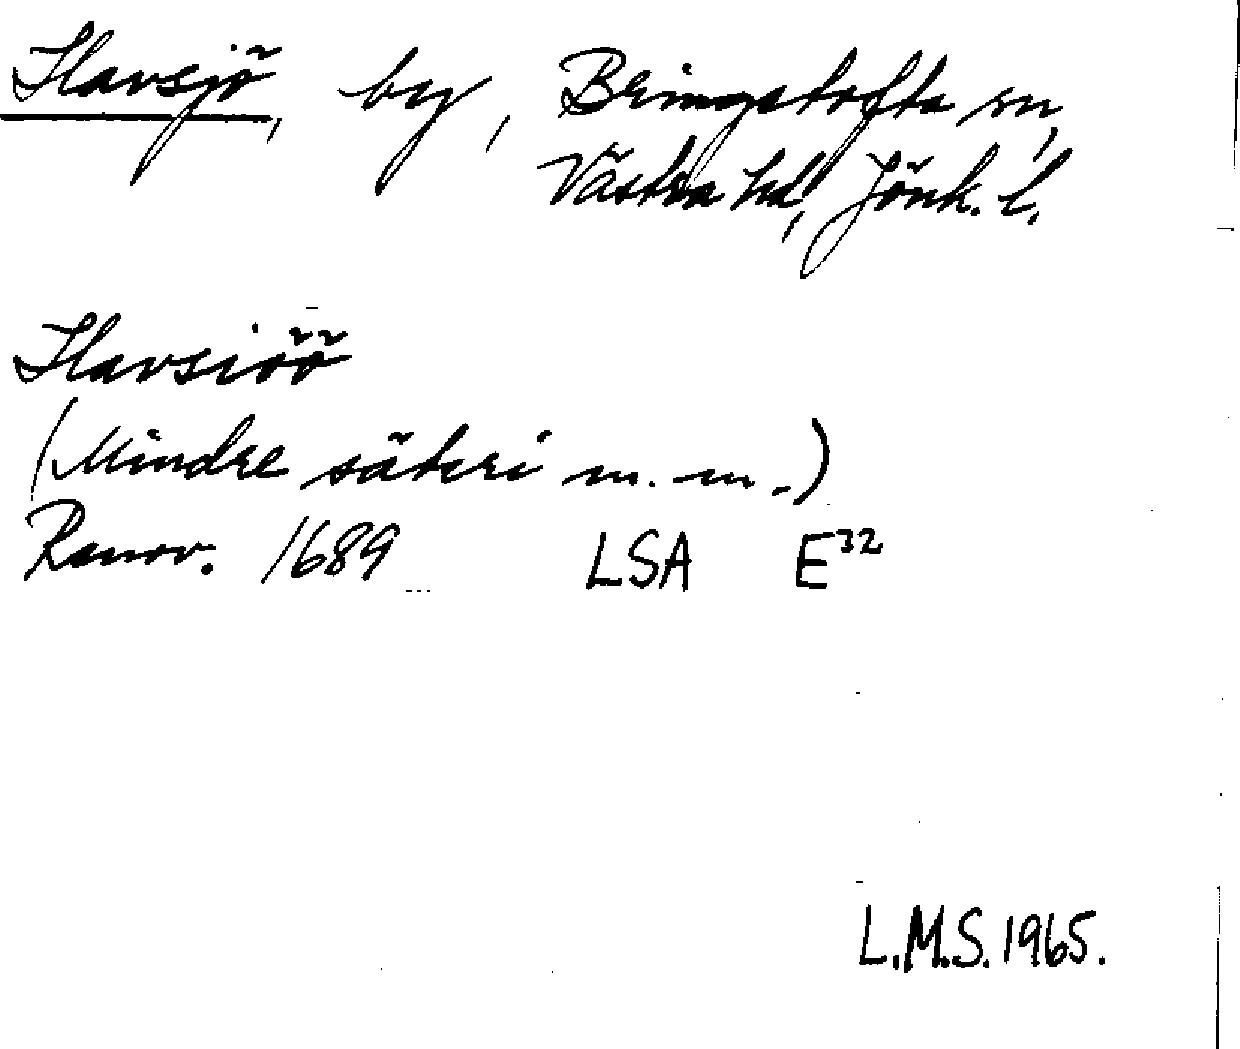 Havsjö, by, Bringetofta sn,
Västra hd, Jönk. l.
Havsiöö
(Mindre säteri m. m.)
Renov. 1689 LSA E32
L.M.S. 1965.